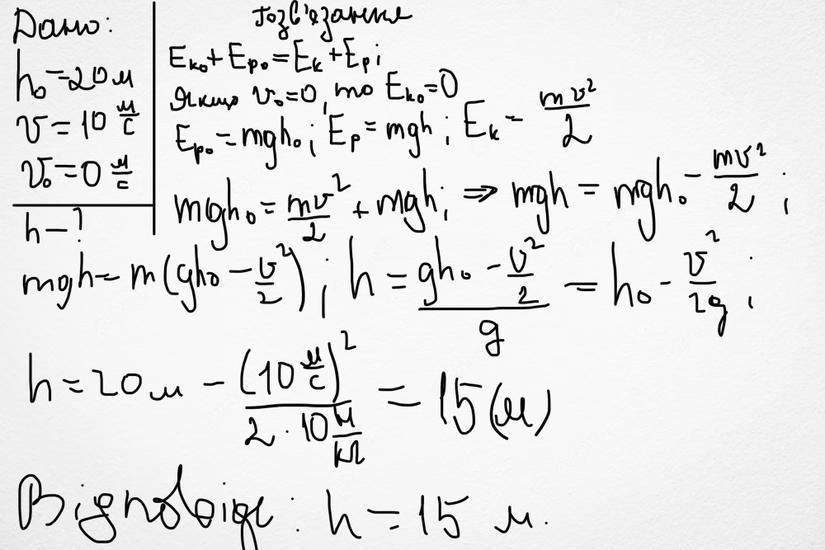 Дано:
h₀=20м
v=10 м/с
v₀=0 м/с
h-?
Розв'язання
Eₖ₀+Eₚ₀=Eₖ+Eₚ;
Якщо v₀=0, то Eₖ₀=0
Eₚ₀=mgh₀; Eₚ=mgh; Eₖ=mv²/2
mgh₀=mv²/2+mgh; ⇒ mgh=mgh₀-mv²/2;
mgh=m(gh₀-v²/2); h=(gh₀-v²/2)/g=h₀-v²/2g;
h=20м-(10 м/с)²/(2·10 Н/кг)=15(м)
Відповідь: h=15 м.